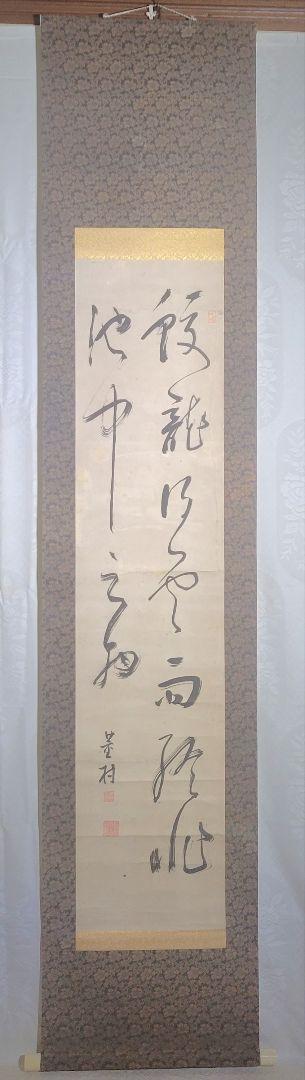 蛟龍得雲雨終非
池中之物